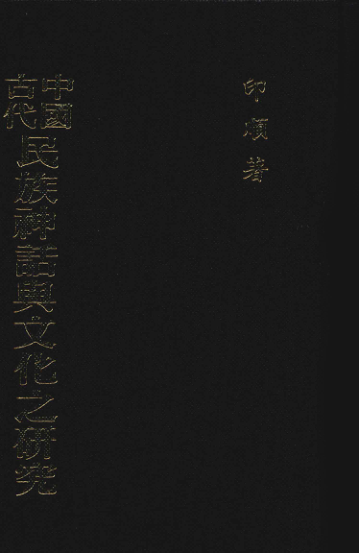 印順著
中國古代民族神話與文化之研究